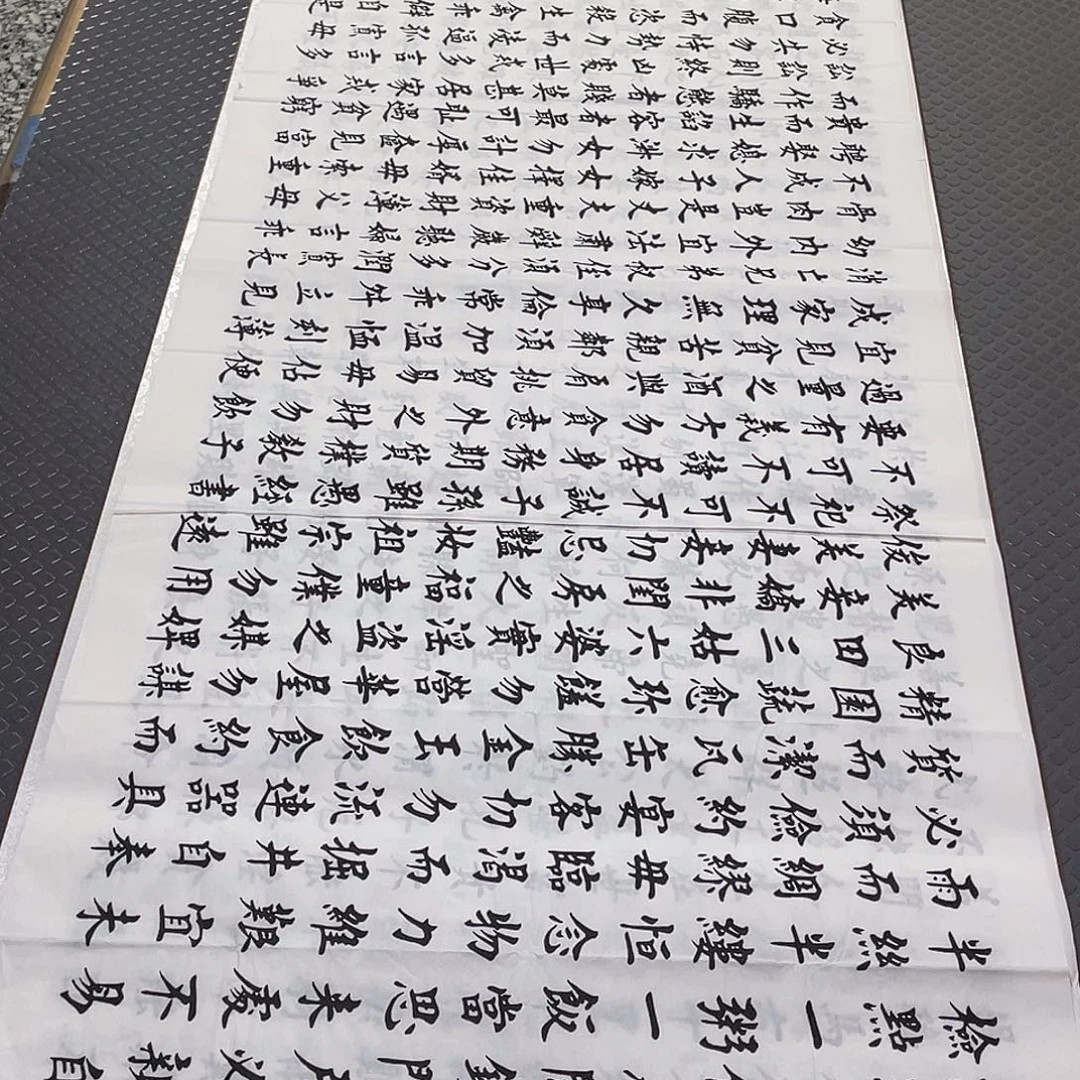 檢點一粥一飯當思來處不易
半絲半縷恒念物力維艱宜未
雨而綢繆毋臨渴而掘井自奉
必須儉約宴客切勿流連器具
質而潔瓦缶勝金玉飲食約而
精園蔬愈珍饈勿營華屋勿謀
良田三姑六婆實淫盜之媒婢
美妾嬌非閨房之福童僕勿用
俊美妻妾切忌豔妝祖宗雖遠
祭祀不可不誠子孫雖愚經書
不可不讀居身務期質樸教子
要有義方勿貪意外之財勿飲
過量之酒與肩挑貿易毋佔便
宜見貧苦親鄰須加溫恤刻薄
成家理無久享倫常乖舛立見
消亡兄弟叔侄須分多潤寡長
幼內外宜法肅辭嚴聽婦言乖
骨肉豈是丈夫重資財薄父母
不成人子嫁女擇佳婿毋索重
聘娶媳求淑女勿計厚奩見富
貴而生諂容者最可恥遇貧窮
而作驕態者賤莫甚居家戒爭
訟訟則終凶處世戒多言言多
必失勿恃勢力而凌逼孤寡毋
貪口腹而恣殺生禽乖僻自是